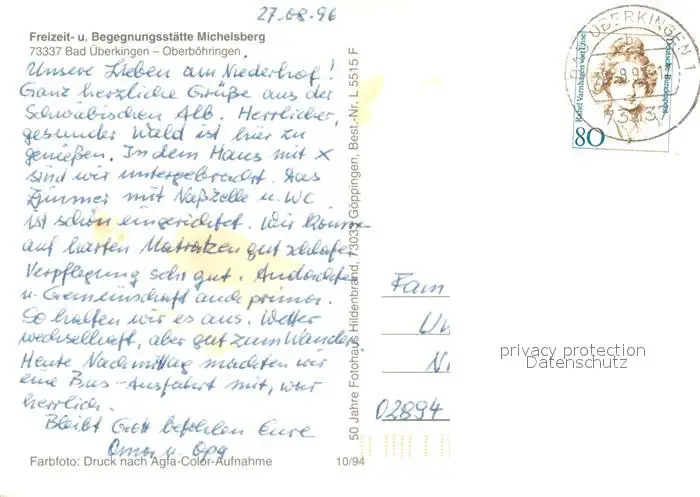 27.08.96
Freizeit- u. Begegnungsstätte Michelsberg
73337 Bad Überkingen – Oberböhringen
Unsere Lieben am Niederhof!
Ganz herzliche Grüße aus der
Schwäbischen Alb. Herrlicher,
gesunder Wald ist hier zu
genießen. In dem Haus mit X
sind wir untergebracht. Das
Zimmer mit Naßzelle u. WC
ist schön eingerichtet. Wir können
auf harten Matratzen gut schlafen
Verpflegung sehr gut. Andachten
u. Gemeinschaft auch prima.
So halten wir es aus. Wetter
wechselhaft, aber gut zum Wandern.
Heute Nachmittag machten wir
eine Bus-Ausfahrt mit, war
herrlich.
Bleibt Gott befohlen Eure
Oma u. Opa
Farbfoto: Druck nach Agfa-Color-Aufnahme
10/94
50 Jahre Fotohaus Hildenbrand, 73033 Göppingen, Best.-Nr. L 5515 F
BAD ÜBERKINGEN 1
b
73337
Rahel Varnhagen von Ense
Deutsche Bundespost
80
Fam
Un
Ni
02894
privacy protection
Datenschutz